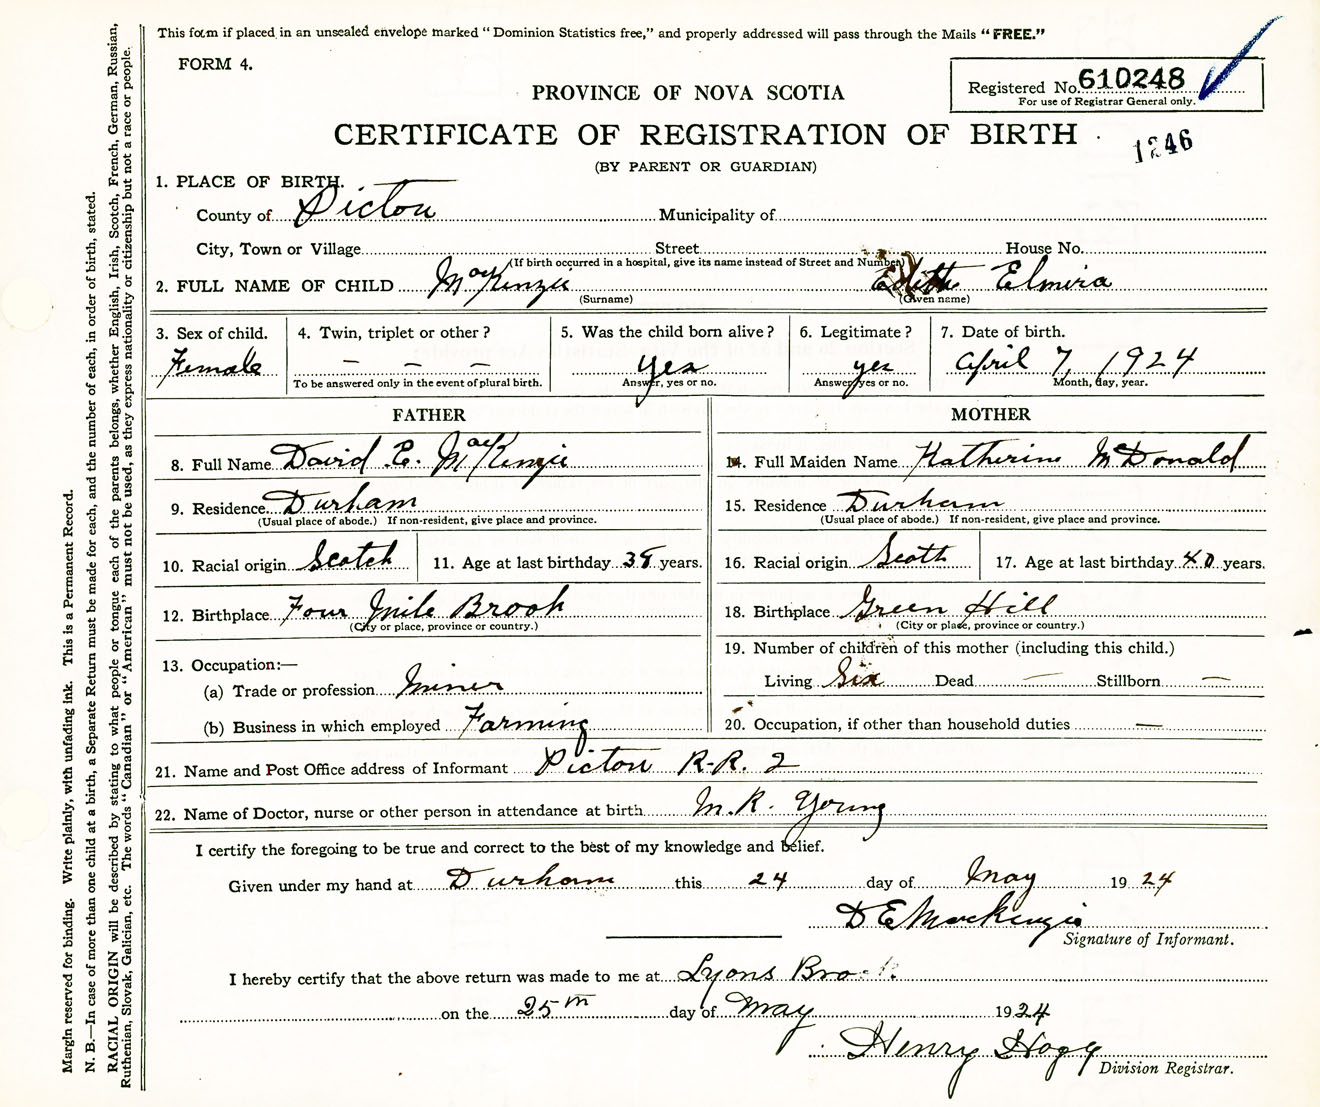 This form if placed in an unsealed envelope marked "Dominion Statistics free," and properly addressed will pass through the Mails "FREE."
FORM 4.
Registered No. 610248
For use of Registrar General only.
PROVINCE OF NOVA SCOTIA
CERTIFICATE OF REGISTRATION OF BIRTH
1246
(BY PARENT OR GUARDIAN)
1. PLACE OF BIRTH.
County of Pictou Municipality of
City, Town or Village Street House No.
(If birth occurred in a hospital, give its name instead of Street and Number)
2. FULL NAME OF CHILD MacKenzie Edith Elmira
(Surname) (Given name)
3. Sex of child. 4. Twin, triplet or other? 5. Was the child born alive? 6. Legitimate? 7. Date of birth.
Female — — — yes yes April 7, 1924
To be answered only in the event of plural birth. Answer, yes or no. Answer yes or no. Month, day, year.
FATHER MOTHER
8. Full Name David E. MacKenzie 14. Full Maiden Name Katherine McDonald
9. Residence Durham 15. Residence Durham
(Usual place of abode.) If non-resident, give place and province. (Usual place of abode.) If non-resident, give place and province.
10. Racial origin Scotch 11. Age at last birthday years. 16. Racial origin Scoth 17. Age at last birthday 40 years.
12. Birthplace Four Mile Brook 18. Birthplace Green Hill
(City or place, province or country.) (City or place, province or country.)
13. Occupation:— 19. Number of children of this mother (including this child.)
(a) Trade or profession Miner Living Six Dead — Stillborn —
(b) Business in which employed Farming 20. Occupation, if other than household duties —
21. Name and Post Office address of Informant Pictou R.R. 2
22. Name of Doctor, nurse or other person in attendance at birth M.R. Young
I certify the foregoing to be true and correct to the best of my knowledge and belief.
Given under my hand at Durham this 24 day of May 1924
D E MacKenzie
Signature of Informant.
I hereby certify that the above return was made to me at Lyons Brook
on the 25th day of May 1924
Henry Hogg
Division Registrar.
Margin reserved for binding. Write plainly, with unfading ink. This is a Permanent Record.
N. B.—In case of more than one child at a birth, a Separate Return must be made for each, and the number of each, in order of birth, stated.
RACIAL ORIGIN will be described by stating to what people or tongue each of the parents belongs, whether English, Irish, Scotch, French, German, Russian,
Ruthenian, Slovak, Galician, etc. The words "Canadian" or "American" must not be used, as they express nationality or citizenship but not a race or people.